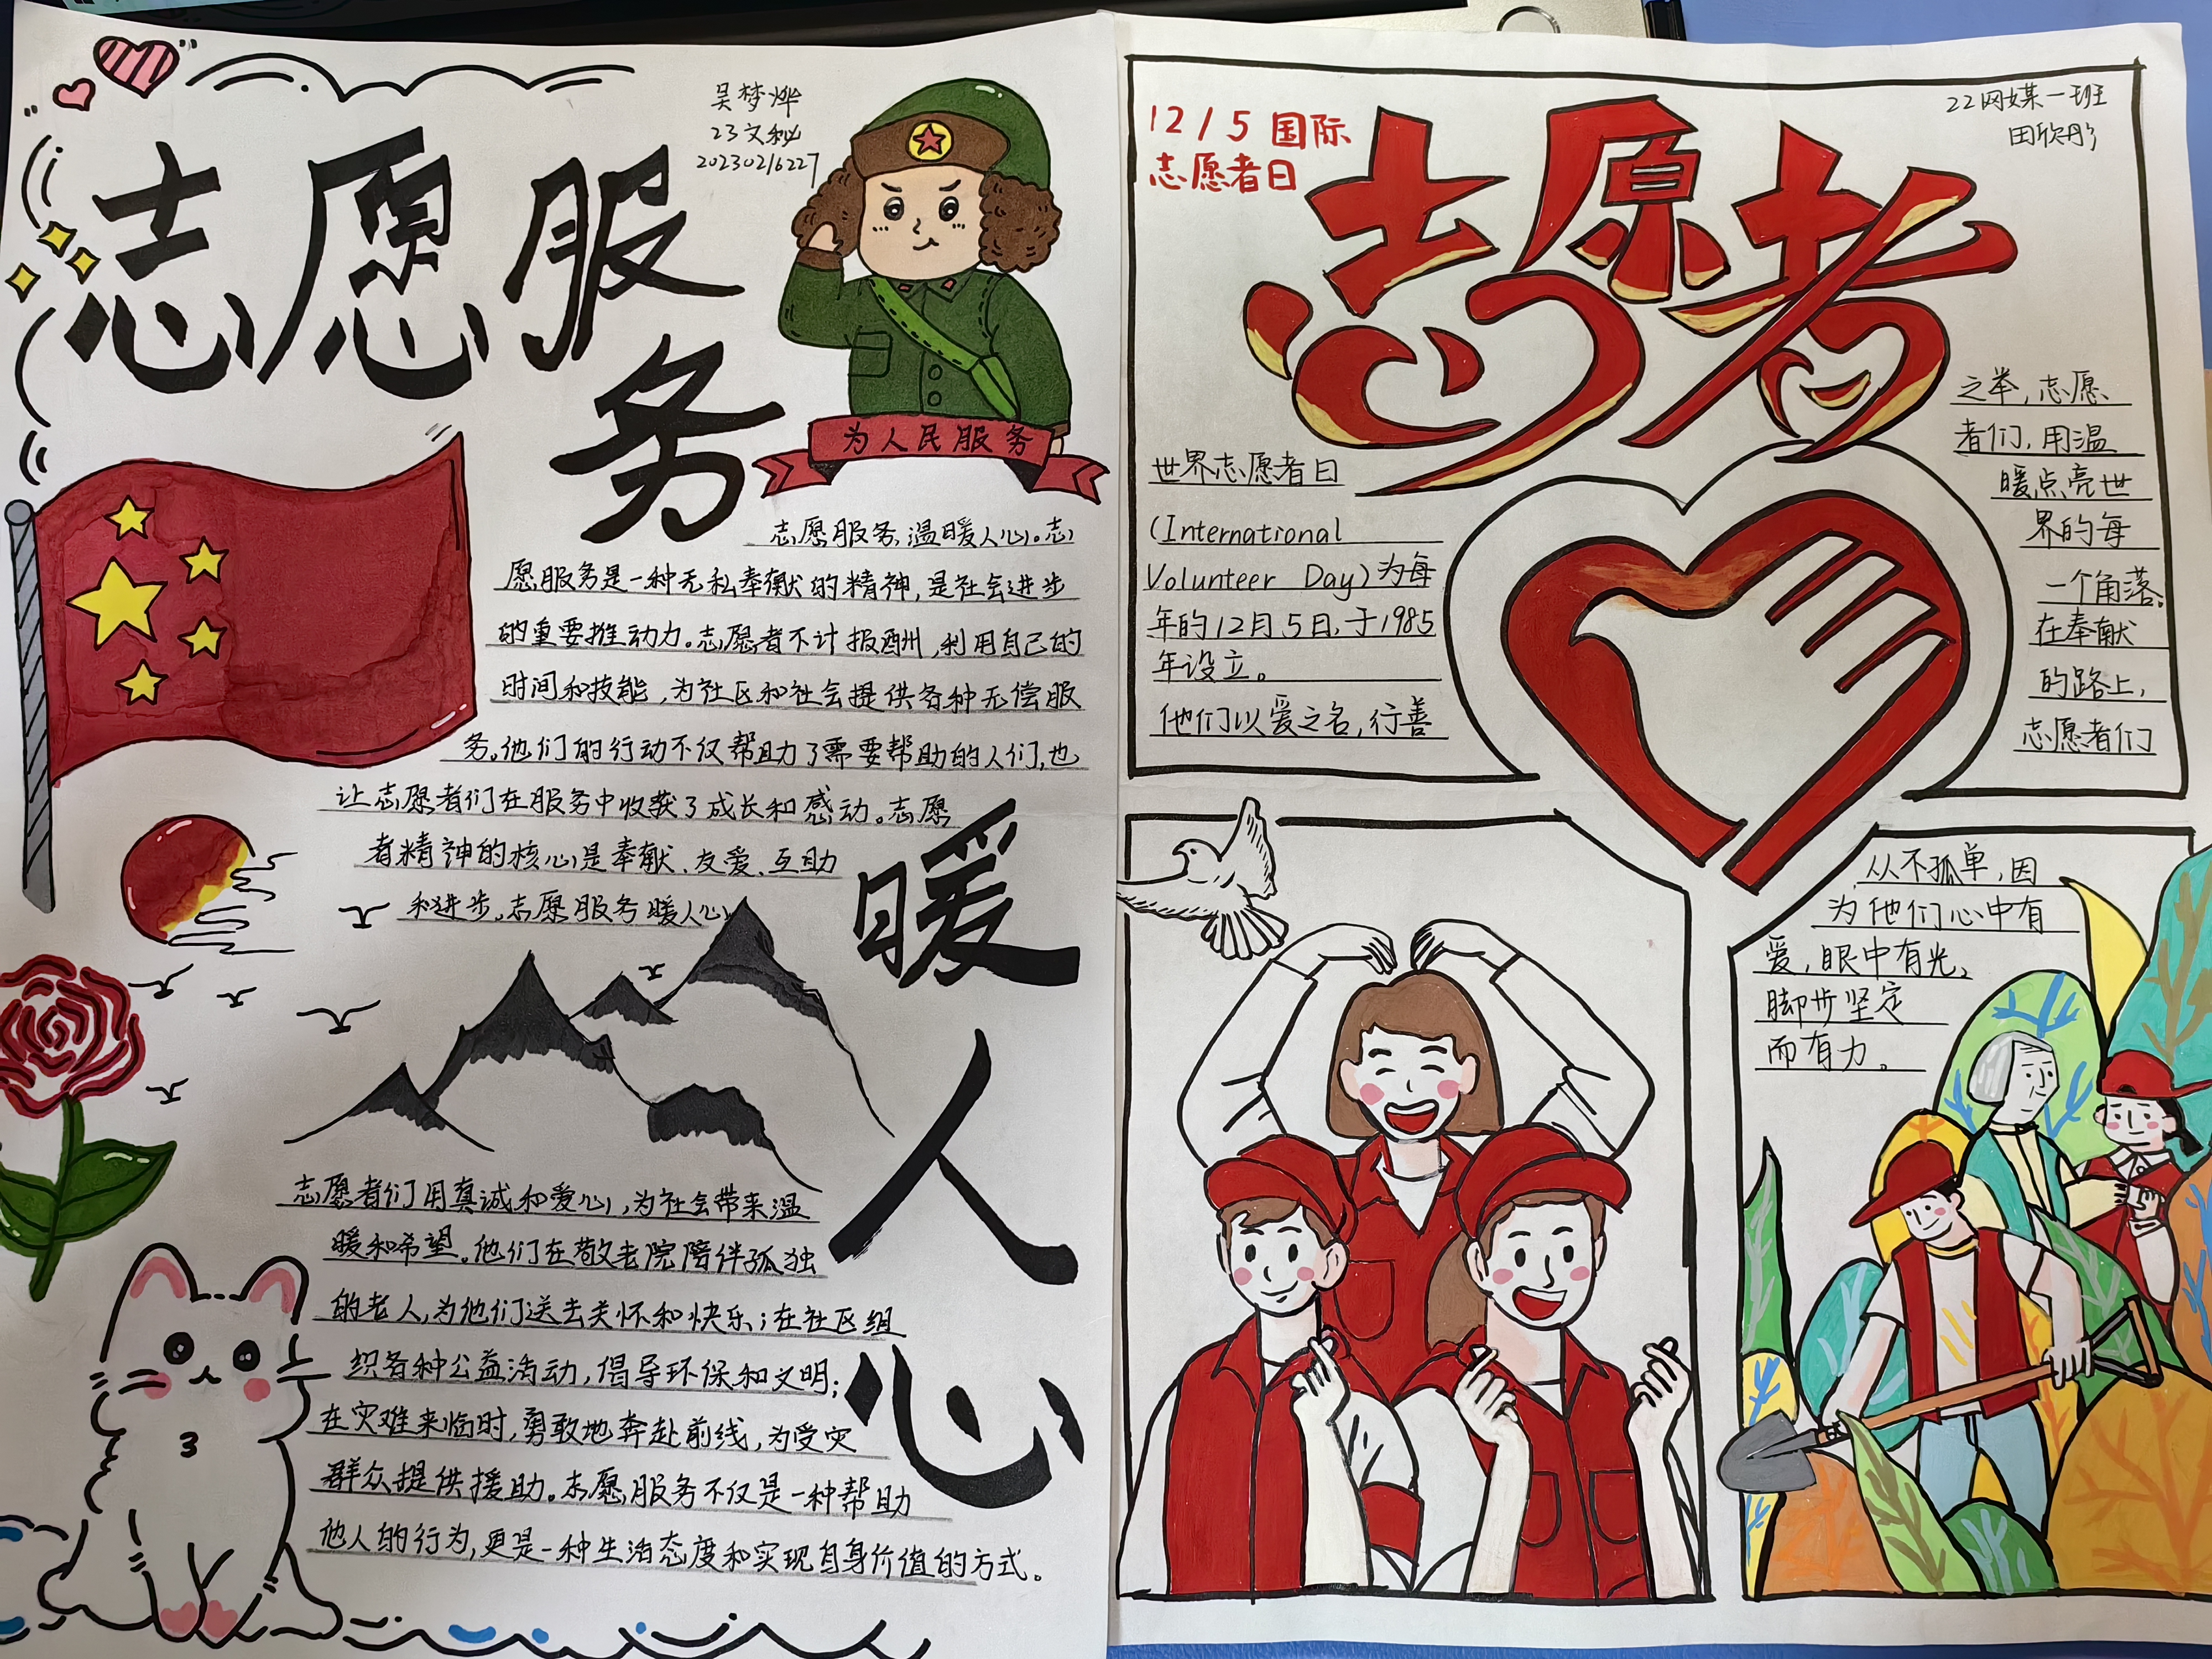 志愿服务
吴梦烨
23文秘
20230216227
为人民服务
志愿服务,温暖人心。志
愿服务是一种无私奉献的精神,是社会进步
的重要推动力。志愿者不计报酬,利用自己的
时间和技能,为社区和社会提供各种无偿服
务。他们的行动不仅帮助了需要帮助的人们,也
让志愿者们在服务中收获了成长和感动。志愿
者精神的核心是奉献、友爱、互助
和进步。志愿服务暖人心
暖人心
志愿者们用真诚和爱心,为社会带来温
暖和希望。他们在敬老院陪伴孤独
的老人,为他们送去关怀和快乐;在社区组
织各种公益活动,倡导环保和文明;
在灾难来临时,勇敢地奔赴前线,为受灾
群众提供援助。志愿服务不仅是一种帮助
他人的行为,更是一种生活态度和实现自身价值的方式。
12/5 国际
志愿者日
志愿者
22网媒一班
田欣彤
世界志愿者日
(International
Volunteer Day)为每
年的12月5日,于1985
年设立。
他们以爱之名,行善
之举,志愿
者们,用温
暖点亮世
界的每
一个角落。
在奉献
的路上,
志愿者们
从不孤单,因
为他们心中有
爱,眼中有光、
脚步坚定
而有力。